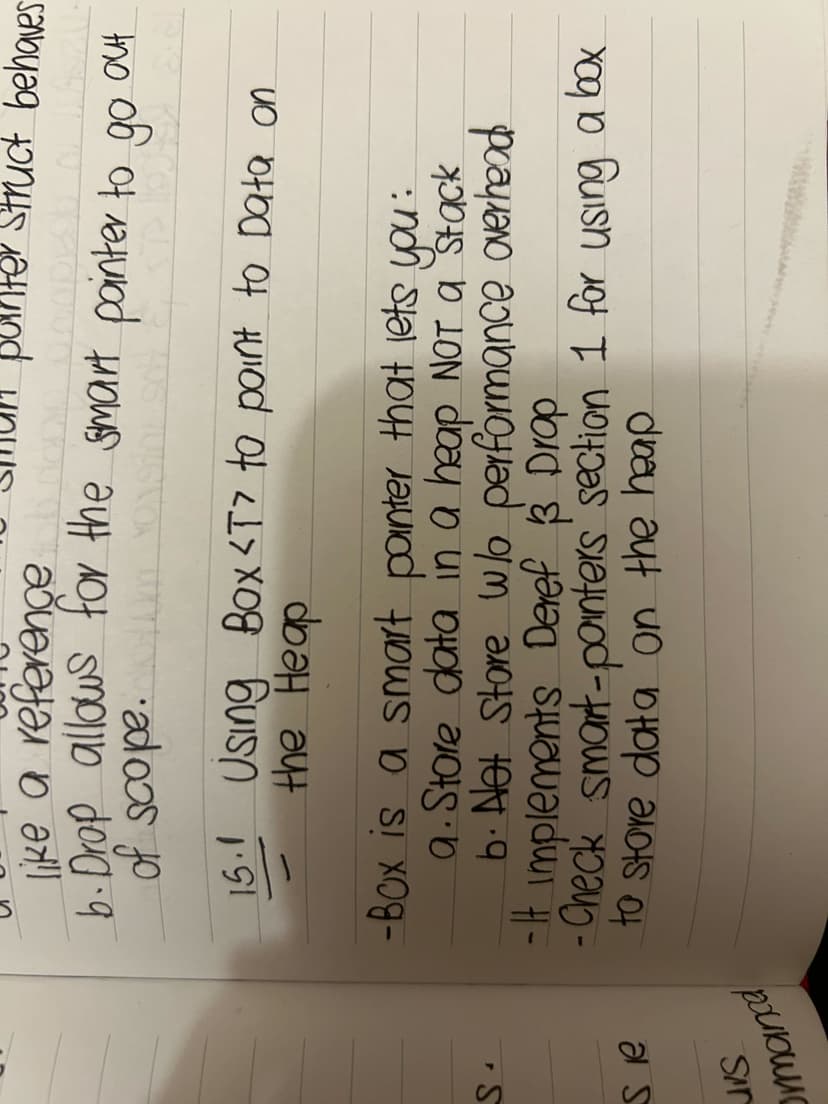 smart pointer struct behaves
like a reference
b. Drop allows for the smart pointer to go out
of scope.
15.1 Using Box<T> to point to Data on
the Heap
- Box is a smart pointer that lets you:
a. Store data in a heap NOT a stack
b. Not Store w/o performance overhead
- It implements Deref & Drop
- Check smart-pointers section 1 for using a box
to store data on the heap